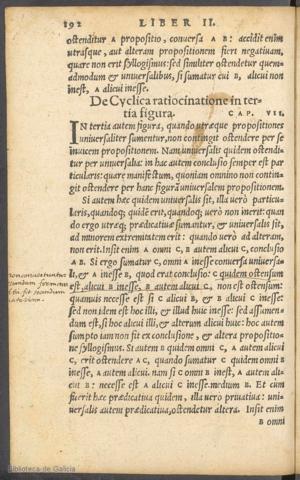 192 LIBER II.
ostenditur A propositio, conversa A B: accidit enim
utrasque, aut alteram propositionem fieri negativam,
quare non erit syllogismus: sed similiter ostendetur quem-
admodum & universalibus, si sumatur cui B, alicui non
inest, A alicui inesse.
De Cyclica ratiocinatione in ter-
tia figura. CAP. VII.
IN tertia autem figura, quando utræque propositiones
universaliter sumentur, non contingit ostendere per se
invicem propositionem. Nam universalis quidem ostendi-
tur per universalia: in hac autem conclusio semper est par-
ticularis: quare manifestum, quoniam omnino non contin-
git ostendere per hanc figurã universalem propositionem.
Si autem hæc quidem universalis sit, illa verò particu-
laris, quandoq; quidẽ erit, quandoq; verò non inerit: quan
do ergo utræq; prædicativæ sumãtur, & universalis sit,
ad minorem extremitatem erit: quando verò ad alteram,
non erit. Insit enim A omni C, B autem alicui C, conclusio
A B. Si ergo sumatur C, omni A inesse conversa universa-
li, & A inesse B, quod erat conclusio: C quidem ostensum
est, alicui B inesse, B autem alicui C, non est ostensum:
quamvis necesse est si C alicui B, & B alicui C inesse:
sed non idem est hoc illi, & illud huic inesse: sed assumen-
dum est, si hoc alicui illi, & alterum alicui huic: hoc autem
sumpto iam non fit ex conclusione, & altera propositio-
ne syllogismus. Si autem B quidem omni C, A autem alicui
C, erit ostendere A C, quando sumatur C quidem omni B
inesse, A autem alicui. nam si C omni B inest, A autem ali-
cui B: necesse est A alicui C inesse. medium B. Et cùm
fuerit hæc prædicativa quidem, illa verò privativa: uni-
versalis autem prædicativa, ostendetur altera. Insit enim
B omni
Biblioteca de Galicia